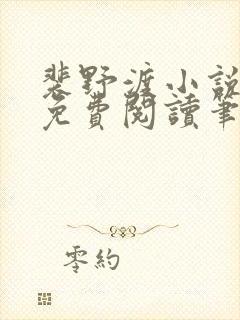 裴野渡小說
免費閱讀筆
零約